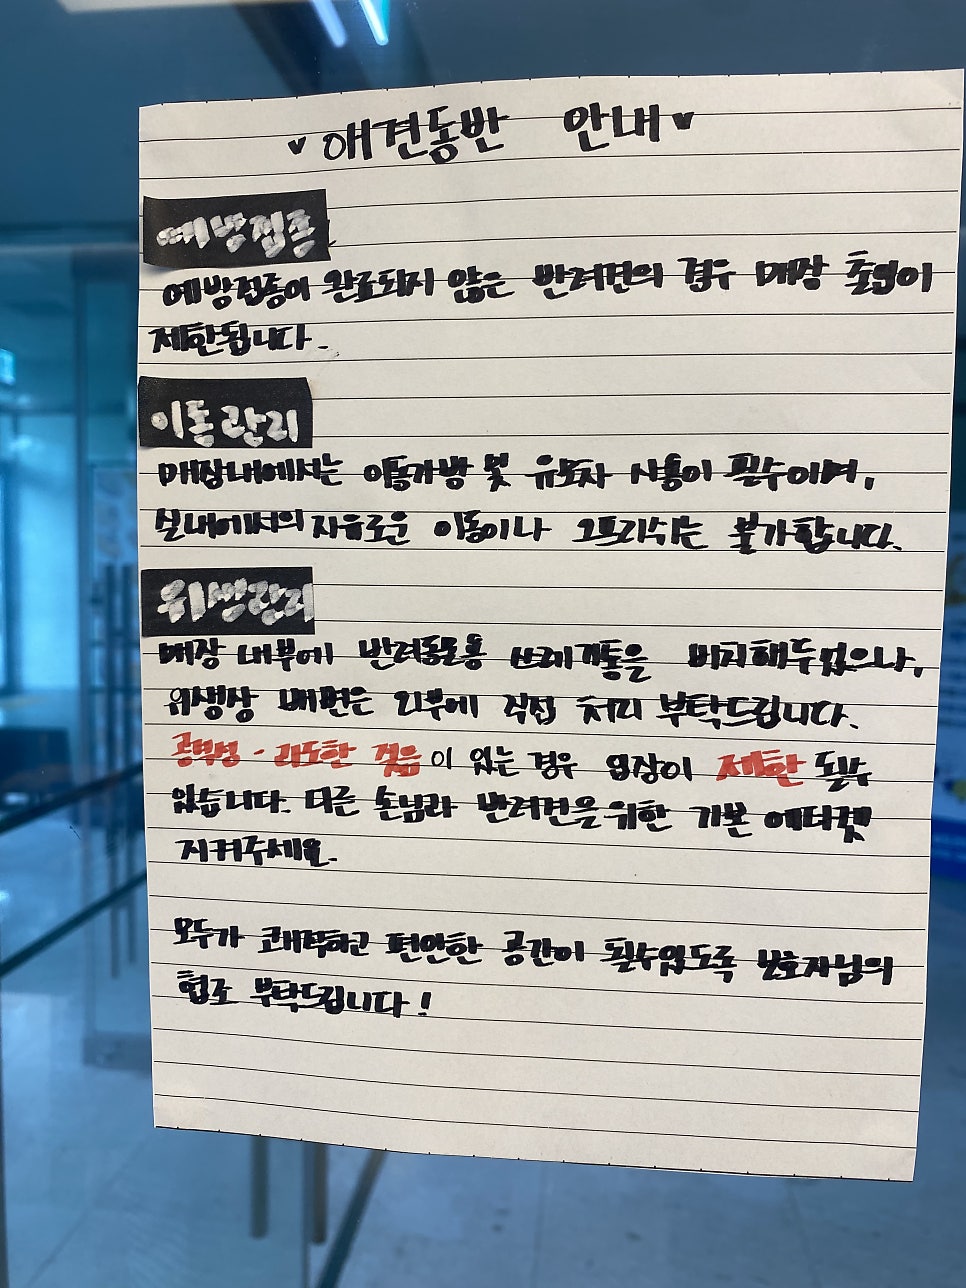 ♥애견동반 안내♥
예방접종
예방접종이 완료되지 않은 반려견의 경우 매장 출입이
제한됩니다.
이동관리
매장내에서는 이동가방 및 유모차 사용이 필수이며,
실내에서의 자유로운 이동이나 오프리쉬는 불가합니다.
위생관리
매장 내부에 반려동물용 쓰레기통을 비치해두었으나,
위생상 배변은 외부에 직접 처리 부탁드립니다.
공격성 · 과도한 짖음이 있는 경우 입장이 제한 될 수
있습니다. 다른 손님과 반려견을 위한 기본 에티켓
지켜주세요.
모두가 쾌적하고 편안한 공간이 될 수 있도록 보호자님의
협조 부탁드립니다!